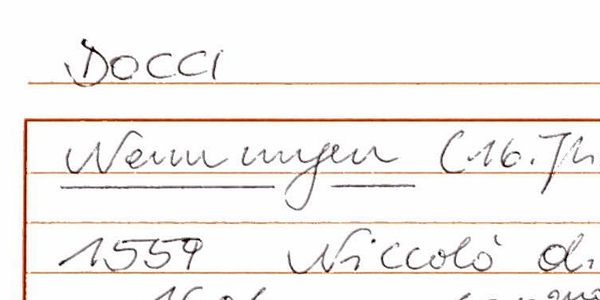 DOCCI
Nennungen (16. Jh
1559 Niccolò di